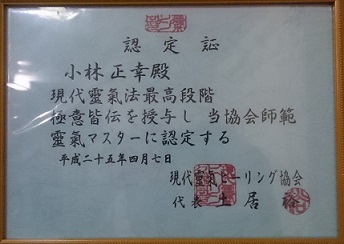 認定証
小林正幸殿
現代靈氣法最高段階
極意皆伝を授与し 当協会師範
靈氣マスターに認定する
平成二十五年四月七日
現代靈氣ヒーリング協会
代表 土居 裕